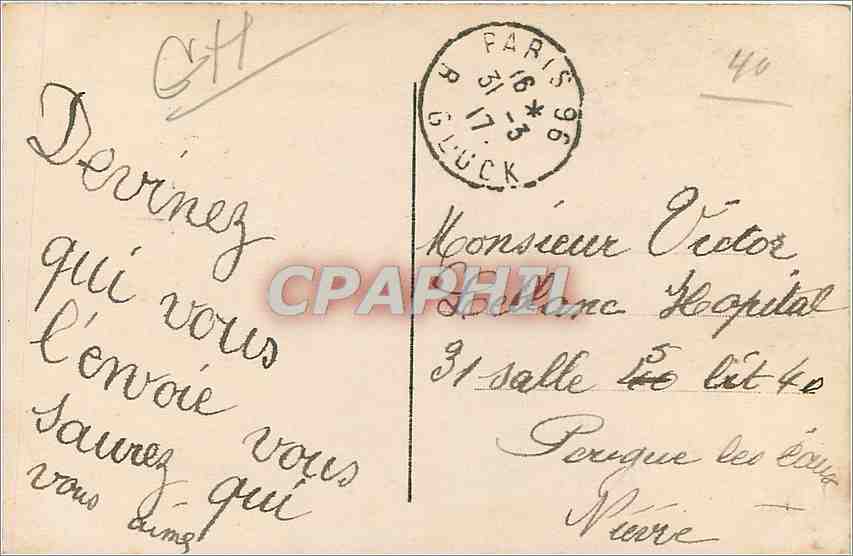 GH
Devinez
qui vous
l'envoie vous
saurez qui
vous aime
PARIS 96
16
31 -3
17
R GLUCK
40
Monsieur Victor
Leblanc Hopital
31 salle 5 lit 40
Pougue les Eaux
Nièvre
CPAPHIL